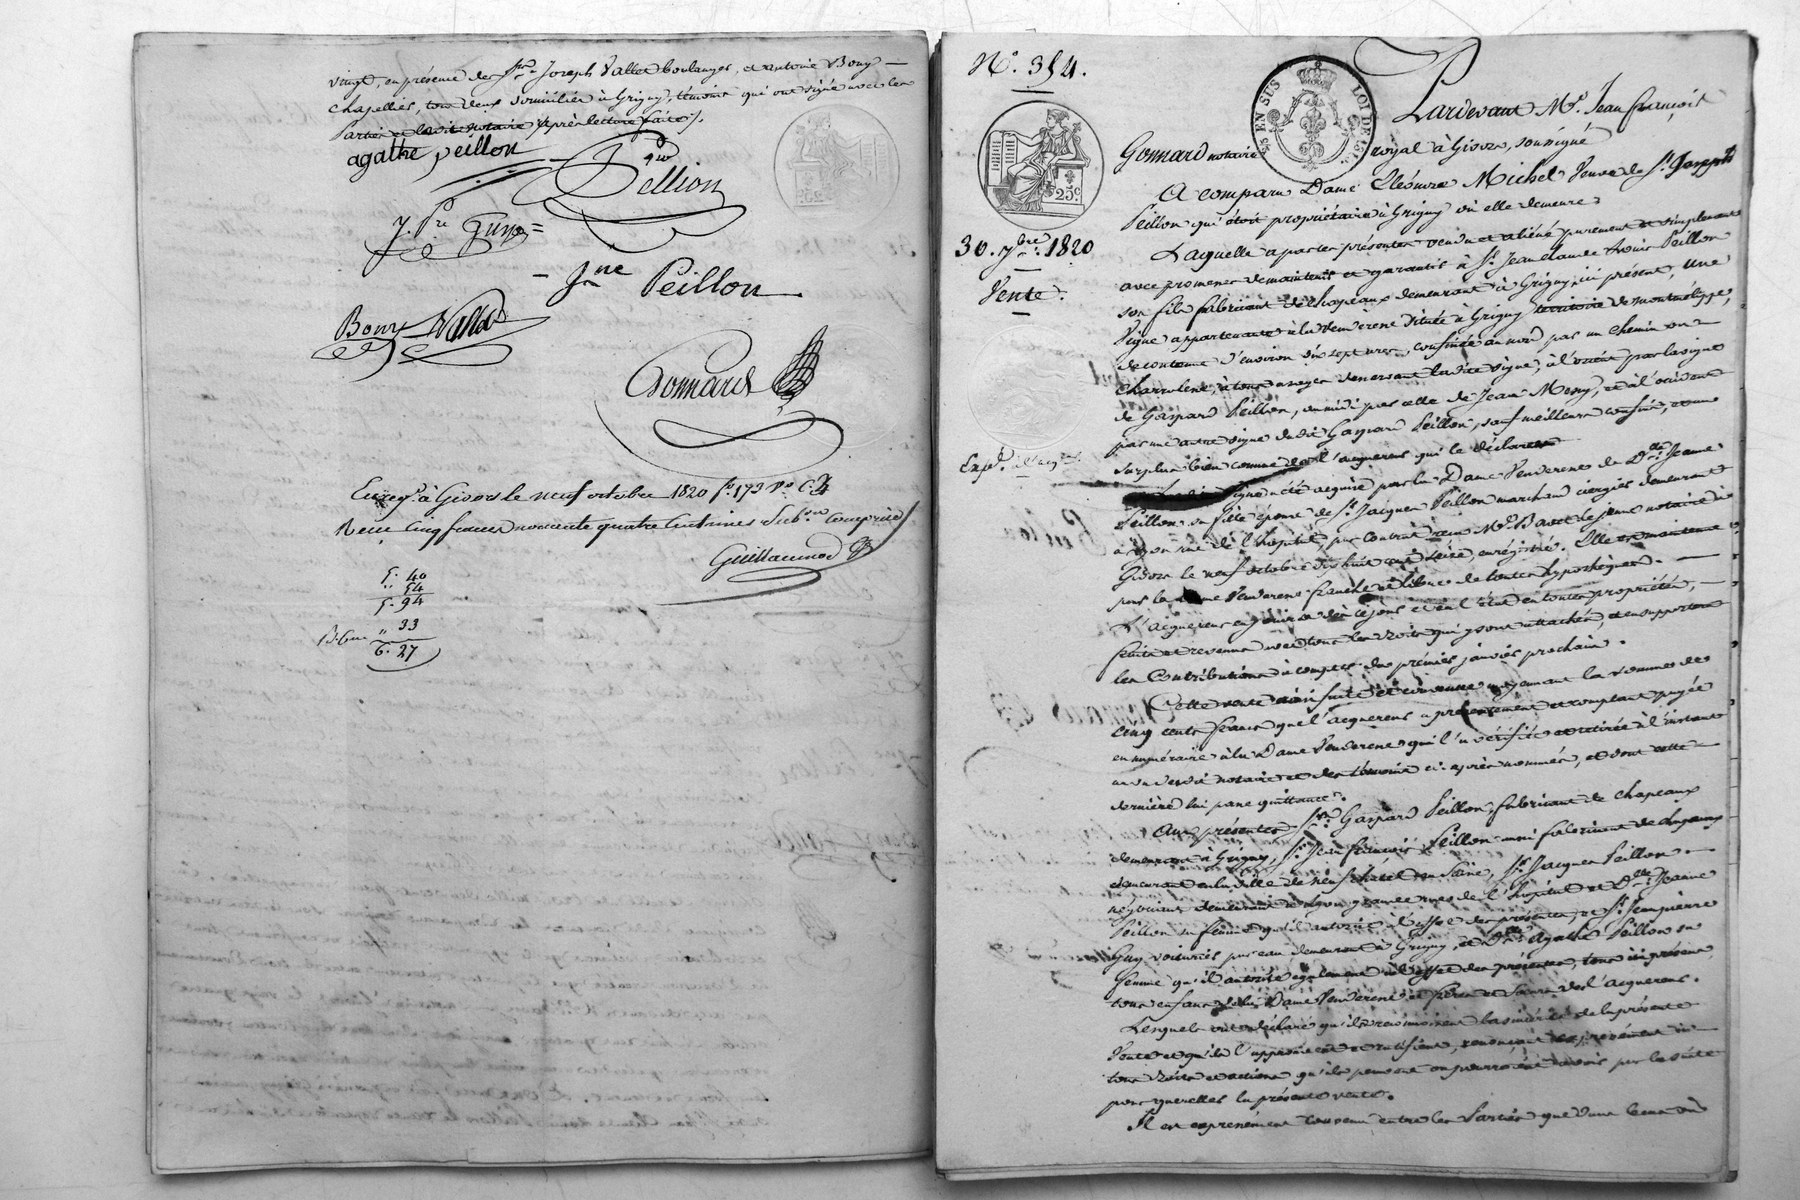 vingt, en présence des Srs Joseph Vallet boulanger, et antoine Bony
Chapellier, tous deux domiciliés à Grigny, témoins qui ont signé avec les
Parties et le dit notaire après lecture faite.
agathe peillon
Pellion
j. Pre Guy
Jne Peillon
Bony Vallet
Gonnard
Enregé à Givors le neuf octobre 1820 fo 173 Vo C. 4
Reçu cinq francs nonante quatre centimes Subon comprise
Guillaumod
5. 40
" 54
5. 94
" 33
6. 27
No. 354.
EN SUS
LOI DE
25c
30. 7bre. 1820
Vente.
Pardevant Me. Jean françois
Gonnard notaire royal à Givors, soussigné
A comparu Dame Eléonore Michel Veuve de Sr. Joseph
Peillon qui étoit propriétaire à Grigny où elle demeure
Laquelle a par ces présentes vendu et aliéné purement et simplement
avec promesse de maintenir et garantir à Sr. Jean claude Peillon
son fils fabricant de chapeaux demeurant à Grigny, ici présent, Une
Vigne appartenante à la Venderesse située à Grigny territoire de
de contenue d'environ six, confinée au nord par un chemin
, à l'orient par la vigne
de Gaspard Peillon, au midi par celle de Jean Mery, et à l'occident
par une autre vigne du dit Gaspard Peillon, sauf meilleurs confins, et au
surplus bien connue de l'acquereur qui le déclare
vigne a été acquise par la Dame Venderesse de Dlle. Jeanne
Peillon sa fille épouse de Sr. Jacques Peillon marchand demeurant
à Lyon rue de l'hopital, par contrat reçu Me. notaire à
Givors le neuf octobre dix huit cent seize, enregistré. Elle est maintenue
par la dame Venderesse franche et libre de toutes hypothèques.
L'acquereur en jouira dès ce jour et à l'avenir en toute propriété,
fruits et revenus avec tous les droits qui y sont attachés, et en supportera
les Contributions à compter du premier janvier prochain.
Cette vente ainsi faite et convenue moyennant la somme de
cinq cents francs que l'acquereur a présentement et comptant payée
en numéraire à la Dame Venderesse qui l'a vérifiée et retirée à l'instant
au vu du dit notaire et des témoins ci-après nommés, et dont cette
dernière lui passe quittance.
Aux présentes Sr. Gaspard Peillon, fabricant de chapeaux
demeurant à Grigny, Sr. Jean françois Peillon aussi fabricant de chapeaux
demeurant en la ville de Neufchatel en, Sr. Jacques Peillon
négociant demeurant à Lyon grande rue de l'hopital et Dlle. Jeanne
Peillon sa femme qu'il autorise à l'effet des présentes, et Sr. Jean pierre
Guy voiturier par eau demeurant à Grigny, et Dlle. Agathe Peillon sa
femme qu'il autorise également à l'effet des présentes, tous ici présens,
tous enfans de la Dame Venderesse et frères et soeurs de l'acquereur.
Lesquels ont déclaré qu'ils reconnoissent la sincérité de la présente
Vente et qu'ils l'approuvent et ratifient, renonçant expressément à
tous droits et actions qu'ils peuvent ou pourroient avoir par la suite
pour quereller la présente vente.
Il est expressément convenu entre les Parties que dans le cas où